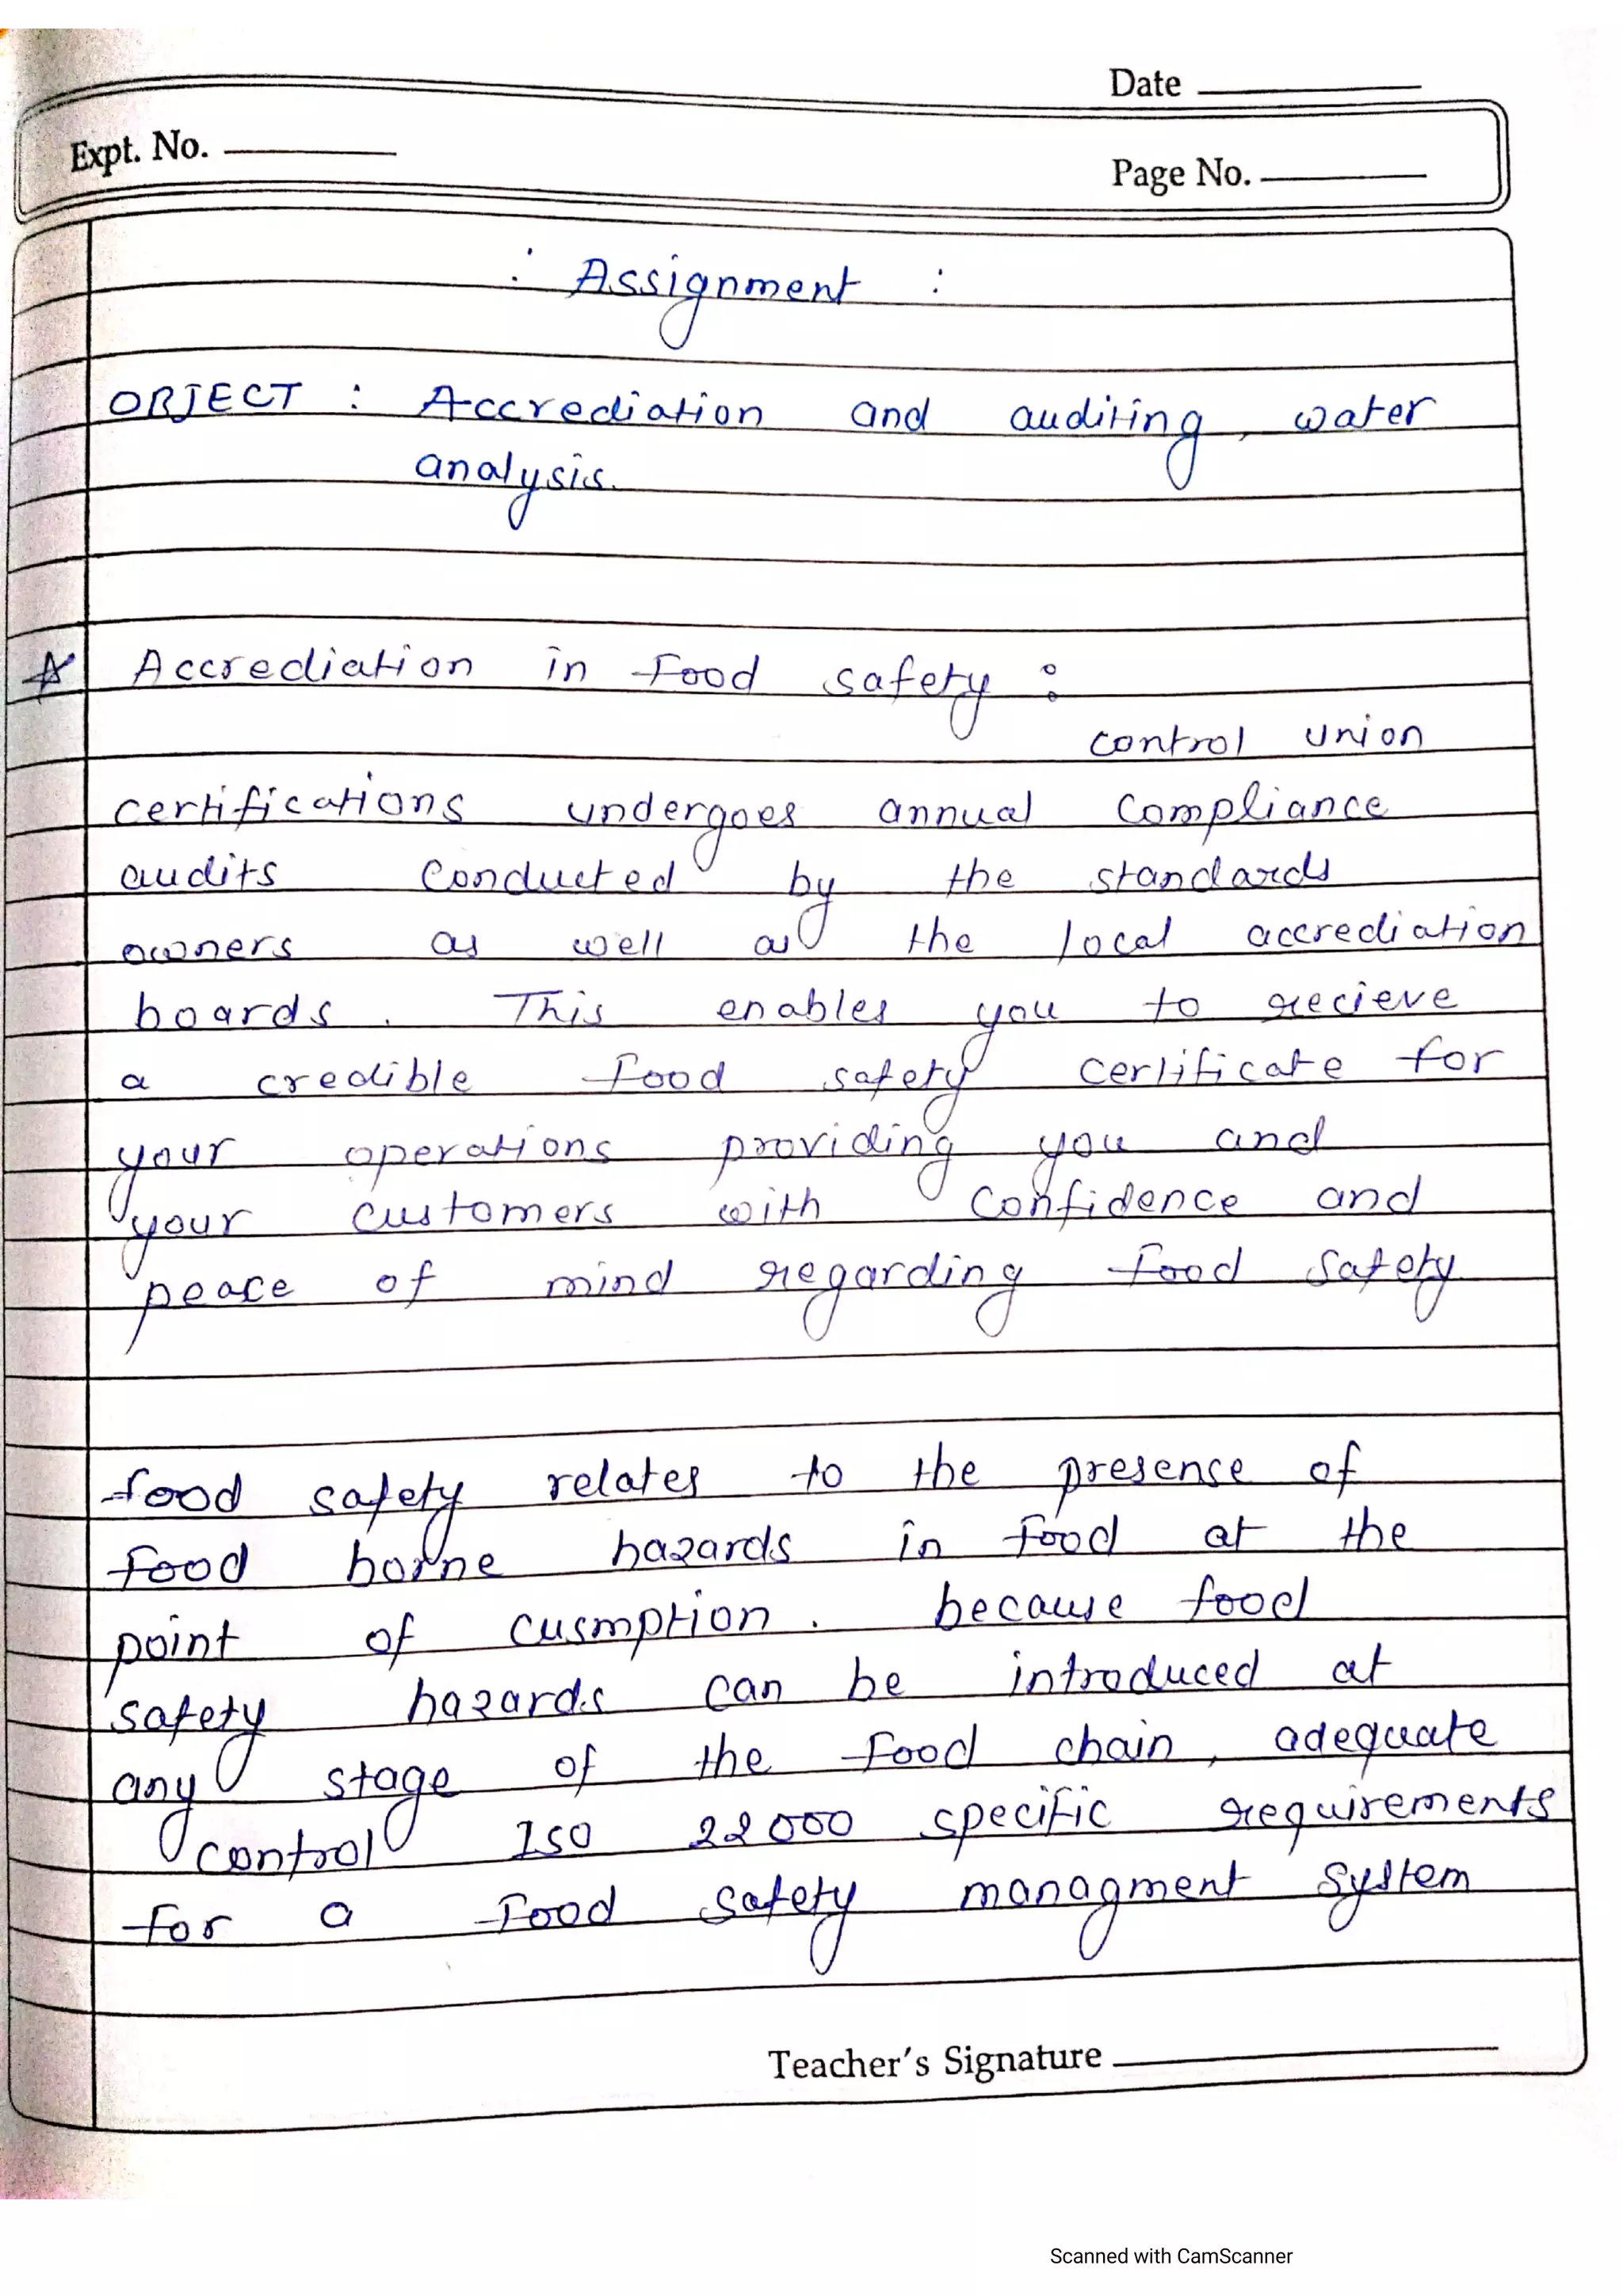 Date
Expt. No.
Page No.
: Assignment :
OBJECT : Accrediation and auditing, water
analysis.
Accrediation in Food safety :
control union
certifications undergoes annual compliance
audits conducted by the standards
owners as well as the local accrediation
boards. This enables you to recieve
a credible food safety certificate for
your operations providing you and
your customers with confidence and
peace of mind regarding food safety
food safety relates to the presense of
food borne hazards in food at the
point of cusmption. because food
safety hazards can be introduced at
any stage of the food chain, adequate
control ISO 22000 specific requirements
for a food safety managment system
Teacher's Signature
Scanned with CamScanner